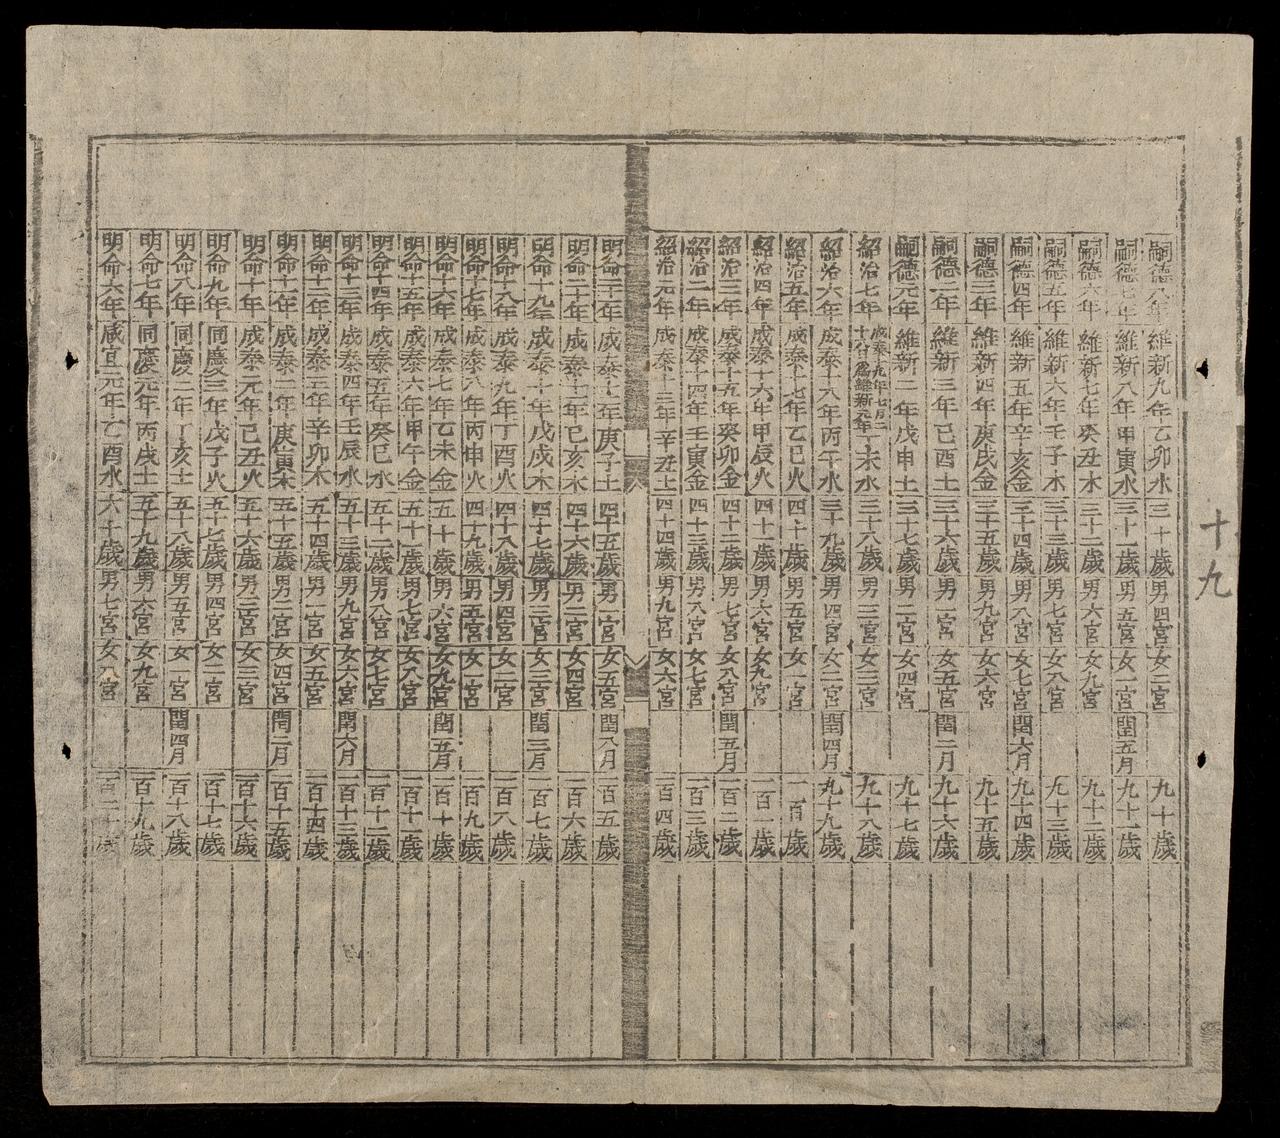 嗣德八年維新九年乙卯水三十歲男四宮女二宮九十歲
嗣德七年維新八年甲寅水三十一歲男五宮女一宮閏五月九十一歲
嗣德六年維新七年癸丑木三十二歲男六宮女九宮九十二歲
嗣德五年維新六年壬子木三十三歲男七宮女八宮九十三歲
嗣德四年維新五年辛亥金三十四歲男八宮女七宮閏六月九十四歲
嗣德三年維新四年庚戌金三十五歲男九宮女六宮九十五歲
嗣德二年維新三年己酉土三十六歲男一宮女五宮閏二月九十六歲
嗣德元年維新二年戊申土三十七歲男二宮女四宮九十七歲
紹治七年成泰九年七月二十八日爲維新元年丁未水三十八歲男三宮女三宮九十八歲
紹治六年成泰十八年丙午水三十九歲男四宮女二宮閏四月九十九歲
紹治五年成泰十七年乙巳火四十歲男五宮女一宮一百歲
紹治四年成泰十六年甲辰火四十一歲男六宮女九宮一百一歲
紹治三年成泰十五年癸卯金四十二歲男七宮女八宮閏五月一百二歲
紹治二年成泰十四年壬寅金四十三歲男八宮女七宮一百三歲
紹治元年成泰十三年辛丑土四十四歲男九宮女六宮一百四歲
明命二十一年成泰十二年庚子土四十五歲男一宮女五宮閏八月一百五歲
明命二十年成泰十一年己亥木四十六歲男二宮女四宮一百六歲
明命十九年成泰十年戊戌木四十七歲男三宮女三宮閏三月一百七歲
明命十八年成泰九年丁酉火四十八歲男四宮女二宮一百八歲
明命十七年成泰八年丙申火四十九歲男五宮女一宮一百九歲
明命十六年成泰七年乙未金五十歲男六宮女九宮閏五月一百十歲
明命十五年成泰六年甲午金五十一歲男七宮女八宮一百十一歲
明命十四年成泰五年癸巳水五十二歲男八宮女七宮一百十二歲
明命十三年成泰四年壬辰水五十三歲男九宮女六宮閏六月一百十三歲
明命十二年成泰三年辛卯木五十四歲男一宮女五宮一百十四歲
明命十一年成泰二年庚寅木五十五歲男二宮女四宮閏二月一百十五歲
明命十年成泰元年己丑火五十六歲男三宮女三宮一百十六歲
明命九年同慶三年戊子火五十七歲男四宮女二宮一百十七歲
明命八年同慶二年丁亥土五十八歲男五宮女一宮閏四月一百十八歲
明命七年同慶元年丙戌土五十九歲男六宮女九宮一百十九歲
明命六年咸宜元年乙酉水六十歲男七宮女八宮一百二十歲
十九